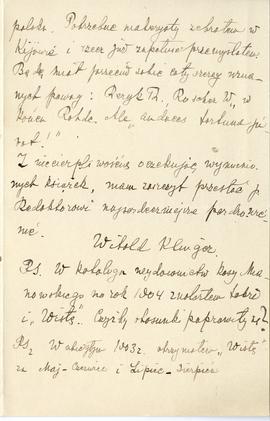 polsko. Potrzebne materyały zebrałem w
Kijowie i rzecz już zupełnie przemyślałem.
Będę miał przeciw sobie cały szereg uzna-
nych powag: Roscher W, w
końcu Rohde. Ale "audaces fortuna ju-
vat!"
Z niecierpliwością oczekując wymienio-
nych książek, mam zaszczyt przesłać p.
Redaktorowi najserdeczniejsze pozdrowie-
nie.
Witold Klinger.
PS. W katalogu wydawnictw Kasy Mia-
nowskiego na rok 1904 znalazłem także
i "Wisłę". Czyżby stosunki poprawiły się?
PS2 W styczniu 1903 r. otrzymałem "Wisłę"
za Maj-Czerwiec i Lipiec-Sierpień